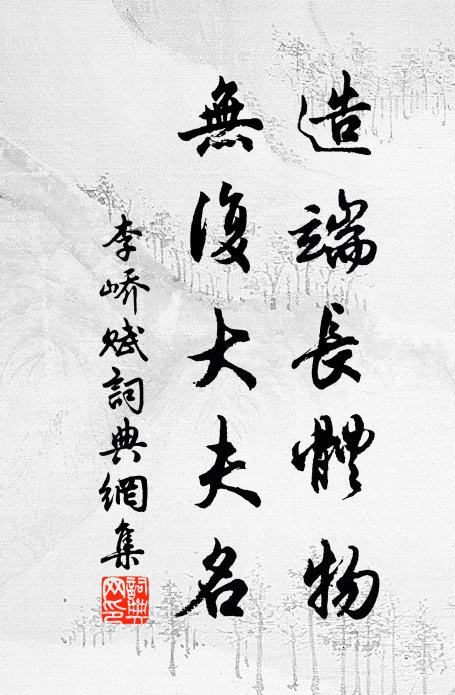 造端長體物
無復大夫名
李嶠賦詞典網集
詞典